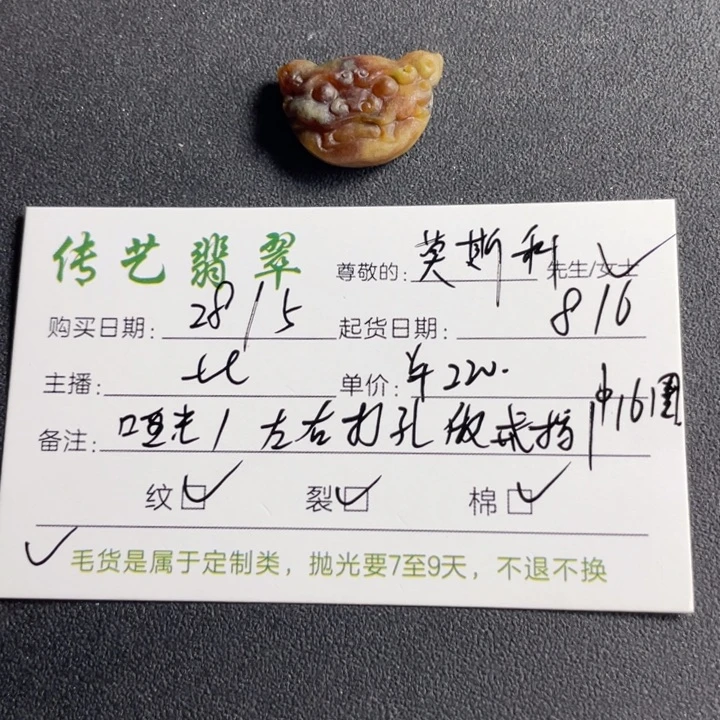 传艺翡翠 尊敬的: 莫斯科 先生/女士
购买日期: 28/5 起货日期: 8/6
主播: 单价: ¥220.
备注: 哑光/左右打孔做戒指/中16圈
纹 裂 棉
毛货是属于定制类，抛光要7至9天，不退不换